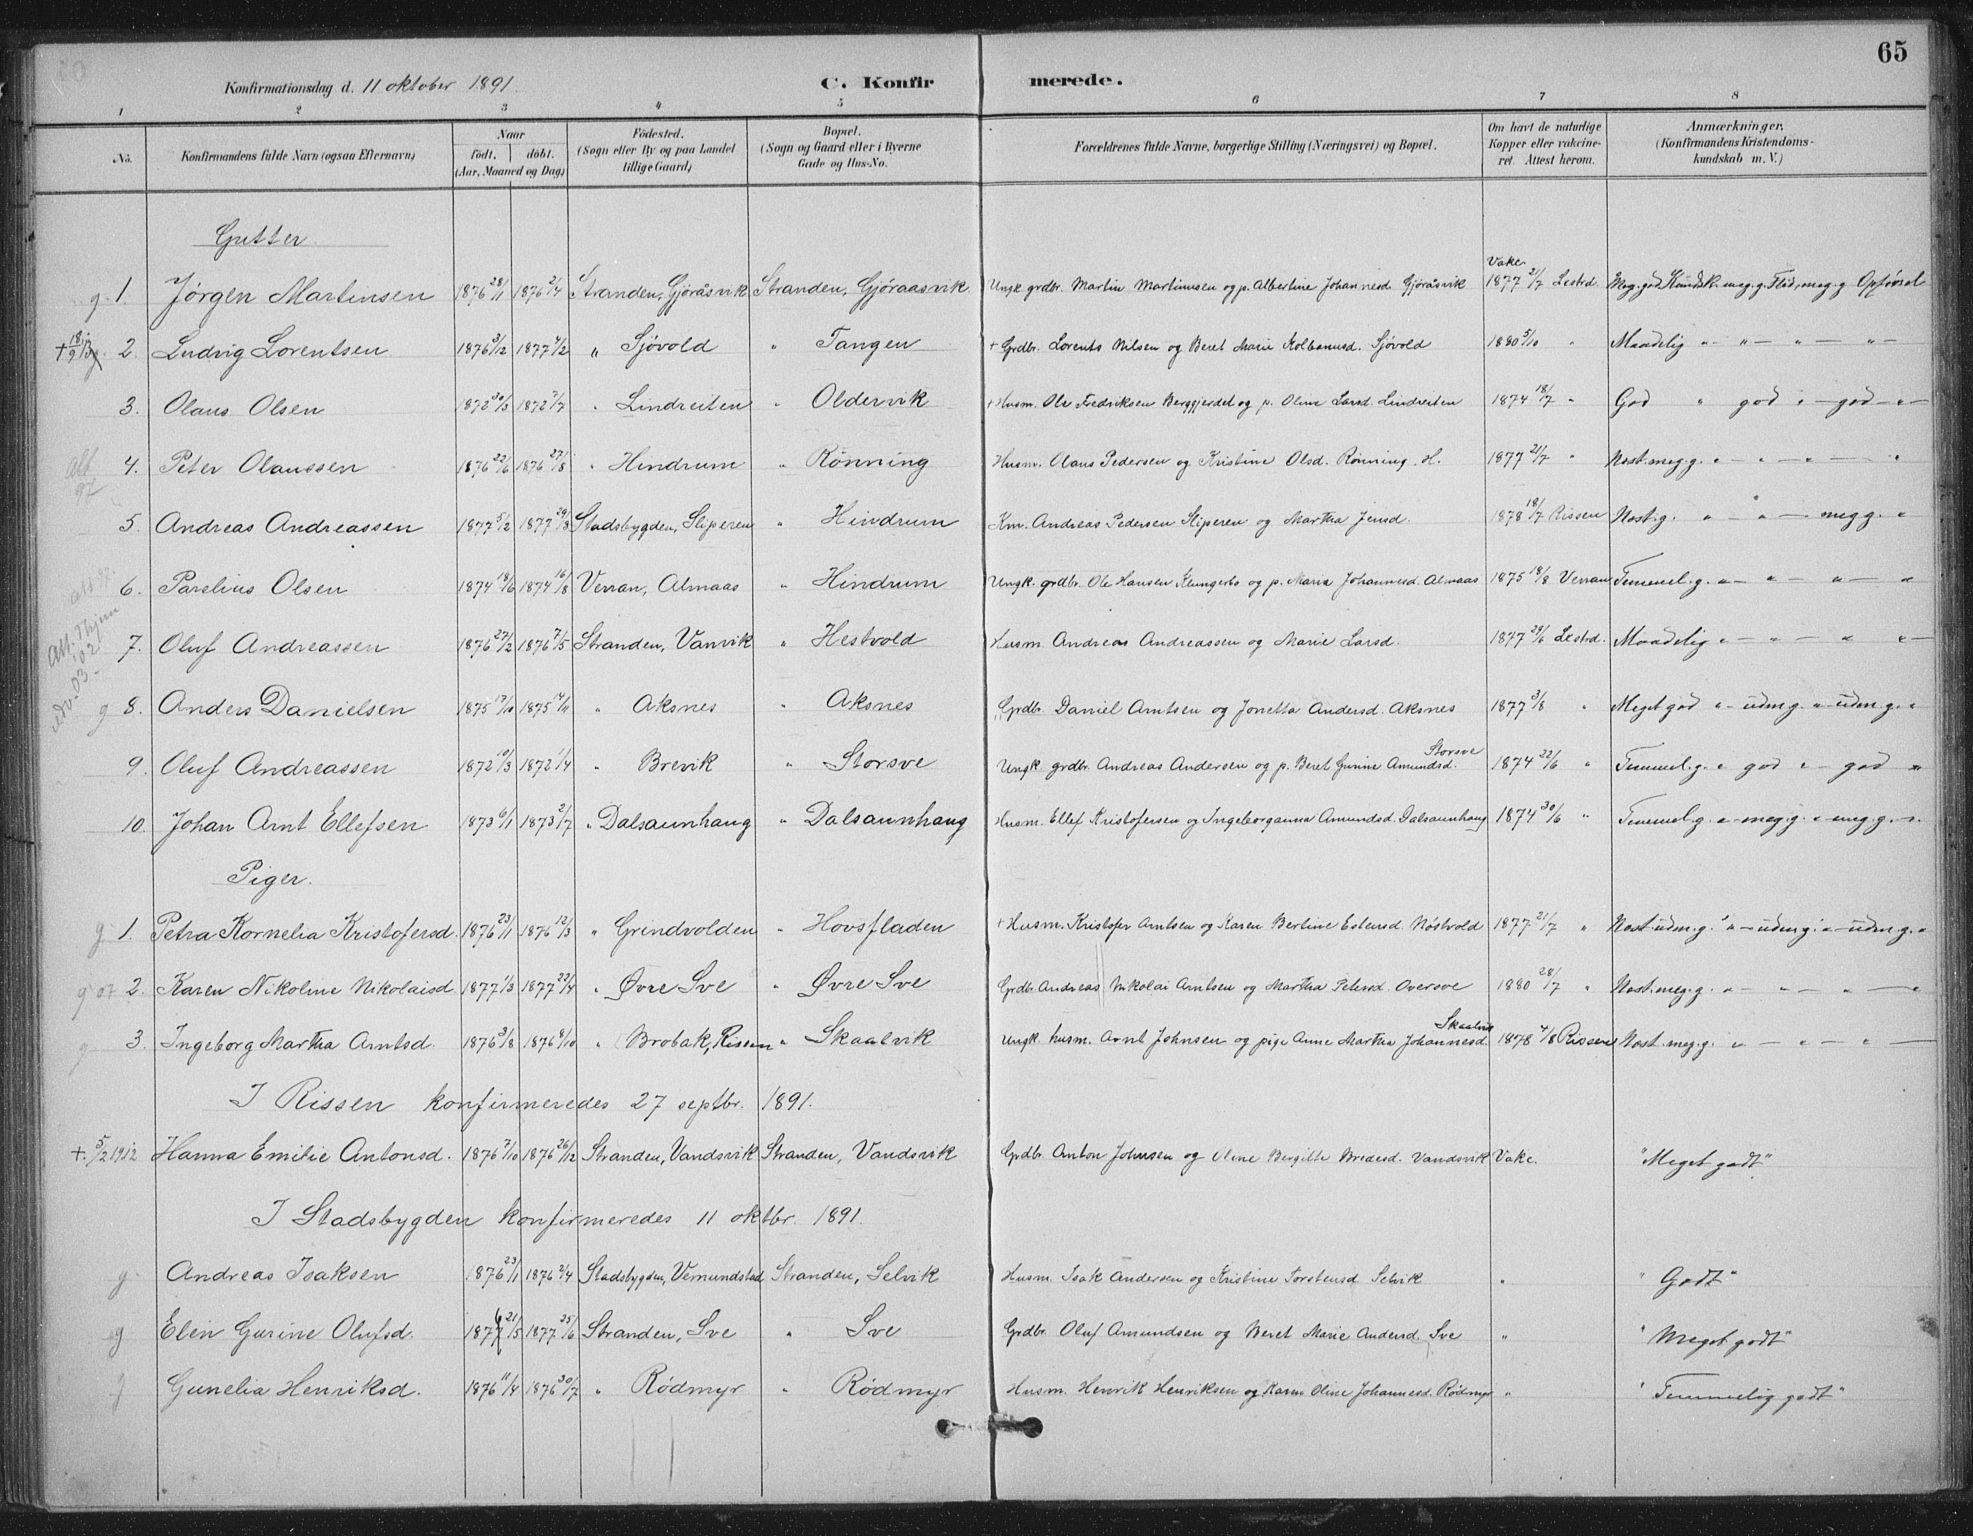 65
Konfirmationsdag d. 11 oktober 1891. C. Konfirmerede.
1 2 3 4 5 6 7 8
No. Konfirmandens fulde Navn (ogsaa Efternavn) Naar født. døbt. (Aar, Maaned og Dag) Födested. (Sogn eller By og paa Landet tillige Gaard) Bopæl. (Sogn og Gaard eller i Byerne Gade og Hus-No. Forældrenes fulde Navne, borgerlige Stilling (Næringsvei) og Bopæl. Om havt de naturlige Kopper eller vakcineret. Attest herom. Anmærkninger. (Konfirmandens Kristendomskundskab m. V.)
Gutter
g 1. Jørgen Martinsen 1876 28/1 1876 2/4 Stranden, Gjöråsvik Stranden, Gjöraasvik Ungk grdbr. Martin Martinusen og p. Albertine Johannesd Gjöråsvik Vakc. 1877 21/7 Lestrd. Meg. god Kundsk. meg. g. Flid, meg. g Opförsel
2. Ludvig Lorentsen 1876 3/12 1877 4/2 " Sjövold " Tangen + Grdbr. Lorents Nilsen og Beret Marie Kolbanusd. Sjövold 1880 5/10 " Maadelig " - " - " - " -
3. Olaus Olsen 1872 30/3 1872 7/7 " Lindreiten " Oldervik + Husm. Ole Fredriksen Berggjerdet og p. Oline Larsd. Lindreiten 1874 18/7 " God " god " - god - " -
4. Peter Olaussen 1876 22/6 1876 27/8 " Hindrum " Rönning Husm. Olaus Pedersen og Kristine Olsd. Rönning. H. 1877 21/7 " Næst. meg. g. " - " - " - "
5. Andreas Andreassen 1877 5/2 1877 29/3 Stadsbygden, Sliperen " Hindrum Km. Andreas Pedersen Sliperen og Martha Jensd. 1878 18/7 Rissen Næst. g. " " - meg g. "
6. Parelius Olsen 1874 18/6 1874 16/8 Verran, Almaas " Hindrum Ungk. grdbr. Ole Hansen Klungerbo og p. Maria Johannesd. Almaas 1875 18/8 Verran Temmel. g. " - " - " - "
7. Oluf Andreassen 1876 27/2 1876 7/5 Stranden, Vanvik " Hestvold Husm. Andreas Andreassen og Marie Larsd. 1877 29/6 Lestrd. Maadelig " - " - " - " -
g 8. Anders Danielsen 1875 13/10 1875 14/11 " Aksnes " Aksnes Grdbr. Daniel Arntsen og Jonetta Andersd. Aksnes 1877 3/8 " Meget god " - udm g. " - udm. g. "
9. Oluf Andreassen 1872 10/3 1872 1/4 " Brevik " Storsve Ungk. grdbr. Andreas Andersen og p. Beret Gurine Amundsd. Storsve 1874 22/6 " Temmel. g. " god " - god "
10. Johan Arnt Ellefsen 1873 6/1 1873 2/7 " Dalsaunhaug " Dalsaunhaug Husm. Ellef Kristofersen og Ingeborganna Amundsd. Dalsaunhaug 1874 30/6 " Temmel. g. " - meg. g. " - meg. g. - "
Piger.
g 1. Petra Kornelia Kristofersd. 1876 23/1 1876 12/3 " Grindvolden " Hovsfladen + Husm. Kristofer Arntsen og Karen Bertine Estensd. Nöstvold 1877 21/7 " Næst udm. g. " - udm g. " - udm. g. "
g 07 2. Karen Nikoline Nikolaisd 1877 1/3 1877 22/4 " Øvre Sve " Øvre Sve Grdbr. Andreas Nikolai Arntsen og Martha Petersd. Oversve 1880 28/7 " Næst. meg. g. " - " - " - "
g 3. Ingeborg Martha Arntsd. 1876 3/8 1876 8/10 " Brobak, Rissen " Skaalvik Ungk. husm. Arnt Johnsen og pige Anne Martha Johannesd. Skaalvik 1878 4/8 Rissen Næst. meg. g. " - " - " -
I Rissen konfirmeredes 27 septbr. 1891.
+ 5/2 1912 Hanna Emilie Antonsd. 1876 7/10 1876 26/12 Stranden, Vandsvik Stranden, Vandsvik Grdbr. Anton Johnsen og Oline Bergitte Bredesd. Vandsvik Vakc. "Meget godt"
I Stadsbygden konfirmeredes 11 oktbr. 1891.
g Andreas Isaksen 1876 23/1 1876 2/4 Stadsbygden, Vemundstad Stranden, Selvik Husm. Isak Andersen og Kristine Torstensd. Selvik " "Godt"
g Elen Gurine Olufsd. 1877 21/5 1877 25/6 Stranden, Sve " Sve Grdbr. Oluf Amundsen og Beret Marie Andersd. Sve " "Meget godt"
g Gunelia Henriksd. 1876 11/4 1876 30/7 " Rödmyr " Rödmyr Husm. Henrik Henriksen og Karen Oline Johannesd. Rödmyr " "Temmelig godt"